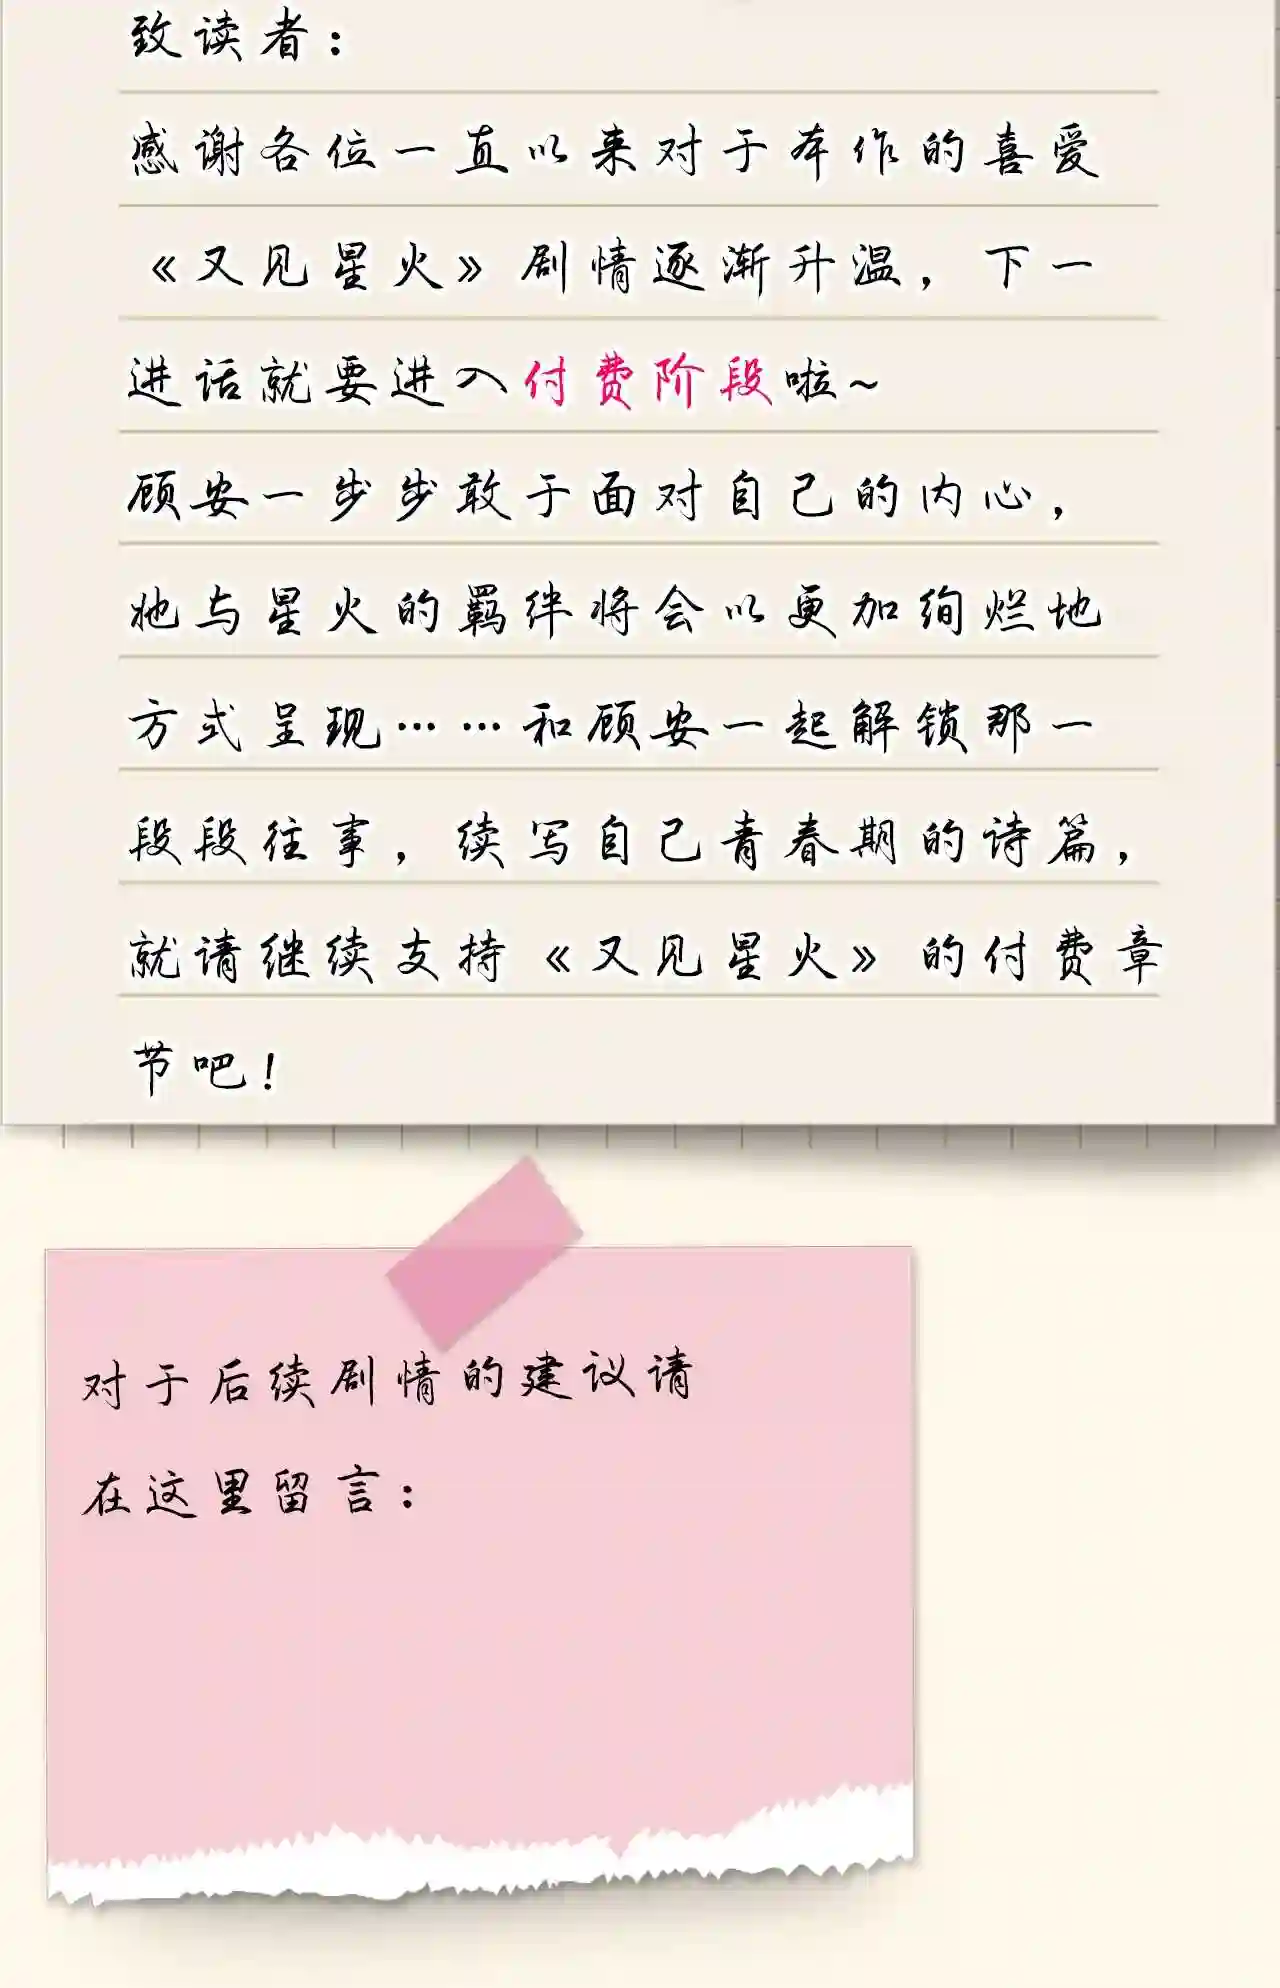 致读者：
感谢各位一直以来对于本作的喜爱
《又见星火》剧情逐渐升温，下一
进话就要进入付费阶段啦~
顾安一步步敢于面对自己的内心，
她与星火的羁绊将会以更加绚烂地
方式呈现……和顾安一起解锁那一
段段往事，续写自己青春期的诗篇，
就请继续支持《又见星火》的付费章
节吧！
对于后续剧情的建议请
在这里留言：